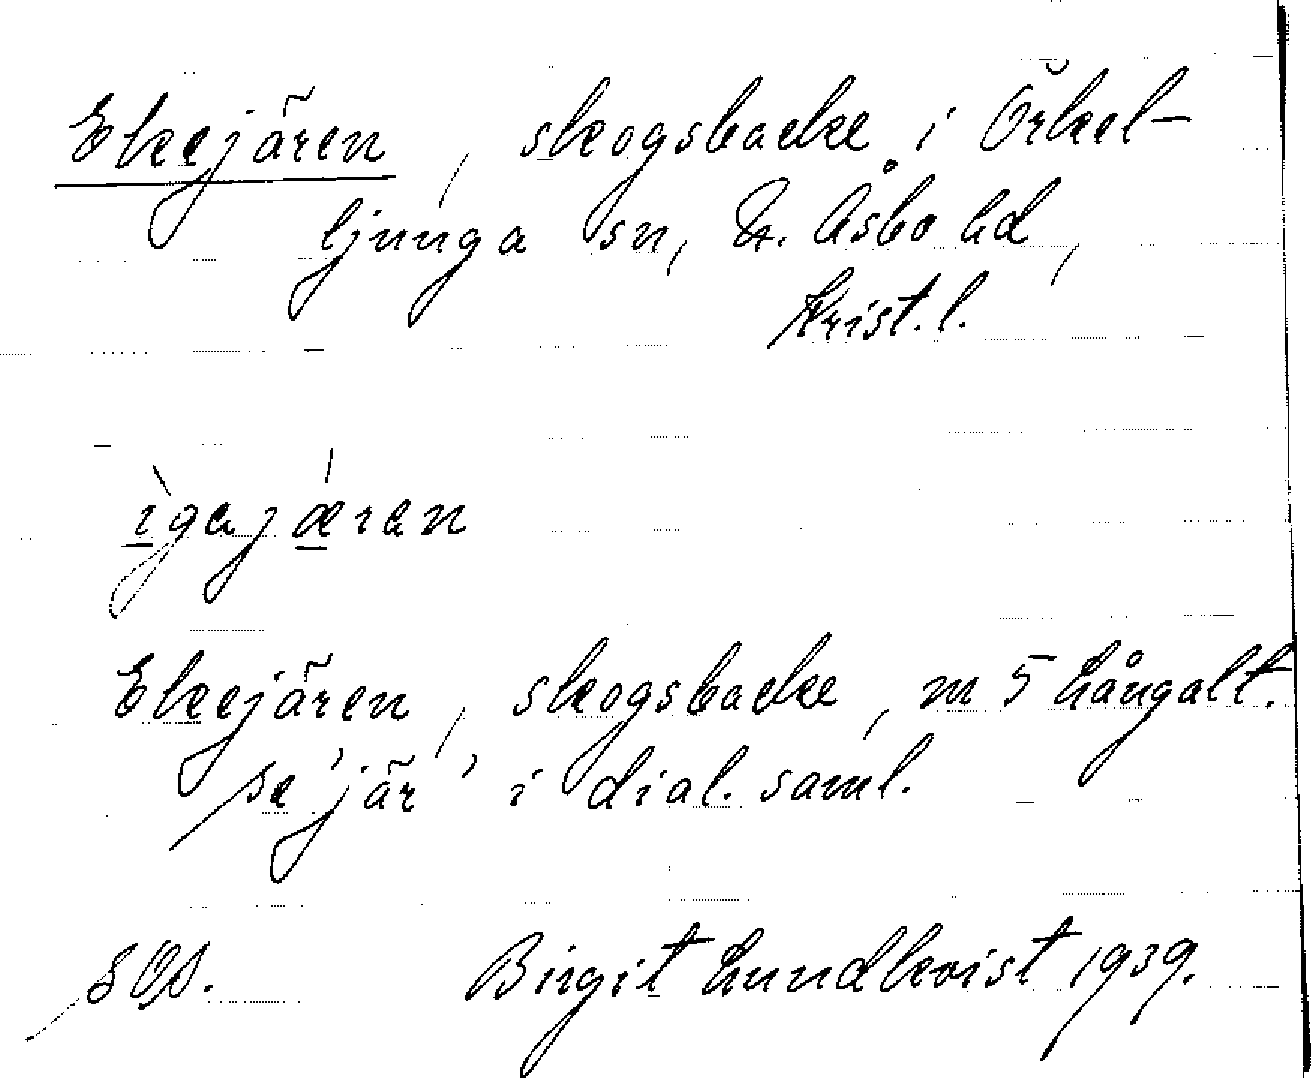 Ekejären, skogsbacke i Örkel-
ljunga sn, N. Åsbo hd,
Krist. l.
ìgajǽran
Ekejären, skogsbacke, m 5 Långalt.
se 'jär' i dial. saml.
Birgit Lundkvist 1939.